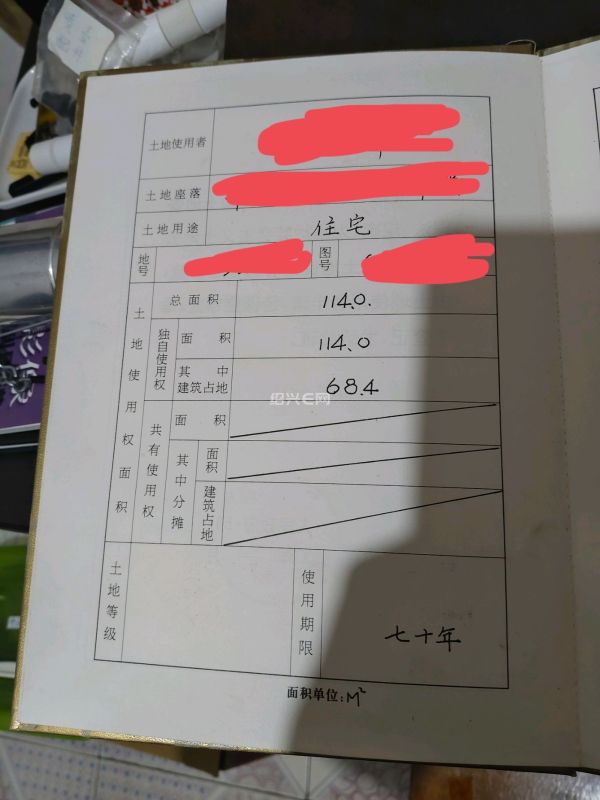 土地使用者
土地座落
土地用途 住宅
地号 图号
土地使用权面积
总面积 114.0.
独自使用权
面积 114.0
其中建筑占地 68.4
共有使用权
面积
其中分摊
面积
建筑占地
土地等级
使用期限 七十年
面积单位:M²
绍兴E网